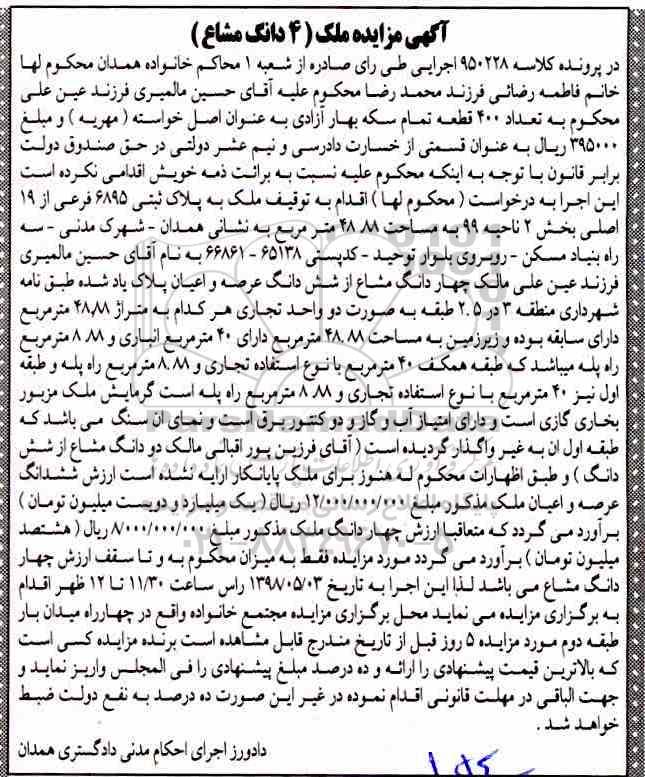 آگهی مزایده ملک ( ۴ دانگ مشاع )
در پرونده کلاسه ۹۵۰۲۲۸ اجرایی طی رای صادره از شعبه ۱ محاکم خانواده همدان محکوم لها
خانم فاطمه رضائی فرزند محمد رضا محکوم علیه آقای حسین مالمیری فرزند عین علی
محکوم به تعداد ۴۰۰ قطعه تمام سکه بهار آزادی به عنوان اصل خواسته ( مهریه ) و مبلغ
۳۹۵۰۰۰ ریال به عنوان قسمتی از خسارت دادرسی و نیم عشر دولتی در حق صندوق دولت
برابر قانون با توجه به اینکه محکوم علیه نسبت به برائت ذمه خویش اقدامی نکرده است
این اجرا به درخواست ( محکوم لها ) اقدام به توقیف ملک به پلاک ثبتی ۶۸۹۵ فرعی از ۱۹
اصلی بخش ۲ ناحیه ۹۹ به مساحت ۴۸.۸۸ متر مربع به نشانی همدان - شهرک مدنی - سه
راه بنیاد مسکن - روبروی بلوار توحید - کدپستی ۶۵۱۳۸ - ۶۶۸۶۱ به نام آقای حسین مالمیری
فرزند عین علی مالک چهار دانگ مشاع از شش دانگ عرصه و اعیان پلاک یاد شده طبق نامه
شهرداری منطقه ۳ در ۲.۵ طبقه به صورت دو واحد تجاری هر کدام به متراژ ۴۸٫۸۸ مترمربع
دارای سابقه بوده و زیرزمین به مساحت ۴۸.۸۸ مترمربع دارای ۴۰ مترمربع انباری و ۸.۸۸ مترمربع
راه پله میباشد که طبقه همکف ۴۰ مترمربع با نوع استفاده تجاری و ۸.۸۸ مترمربع راه پله و طبقه
اول نیز ۴۰ مترمربع با نوع استفاده تجاری و ۸.۸۸ مترمربع راه پله است گرمایش ملک مزبور
بخاری گازی است و دارای امتیاز آب و گاز و دو کنتور برق است و نمای ان سنگ می باشد که
طبقه اول ان به غیر واگذار گردیده است ( آقای فرزین پور اقبالی مالک دو دانگ مشاع از شش
دانگ ) و طبق اظهارات محکوم له هنوز برای ملک پایانکار ارایه نشده است ارزش ششدانگ
عرصه و اعیان ملک مذکور مبلغ ۱۲/۰۰۰/۰۰۰/۰۰۰ ریال ( یک میلیارد و دویست میلیون تومان )
برآورد می گردد که متعاقبا ارزش چهار دانگ ملک مذکور مبلغ ۸/۰۰۰/۰۰۰/۰۰۰ ریال ( هشتصد
میلیون تومان ) برآورد می گردد مورد مزایده فقط به میزان محکوم به و تا سقف ارزش چهار
دانگ مشاع می باشد لذا این اجرا به تاریخ ۱۳۹۸/۰۵/۰۳ راس ساعت ۱۱/۳۰ تا ۱۲ ظهر اقدام
به برگزاری مزایده می نماید محل برگزاری مزایده مجتمع خانواده واقع در چهارراه میدان بار
طبقه دوم مورد مزایده ۵ روز قبل از تاریخ مندرج قابل مشاهده است برنده مزایده کسی است
که بالاترین قیمت پیشنهادی را ارائه و ده درصد مبلغ پیشنهادی را فی المجلس واریز نماید و
جهت الباقی در مهلت قانونی اقدام نموده در غیر این صورت ده درصد به نفع دولت ضبط
خواهد شد .
دادورز اجرای احکام مدنی دادگستری همدان